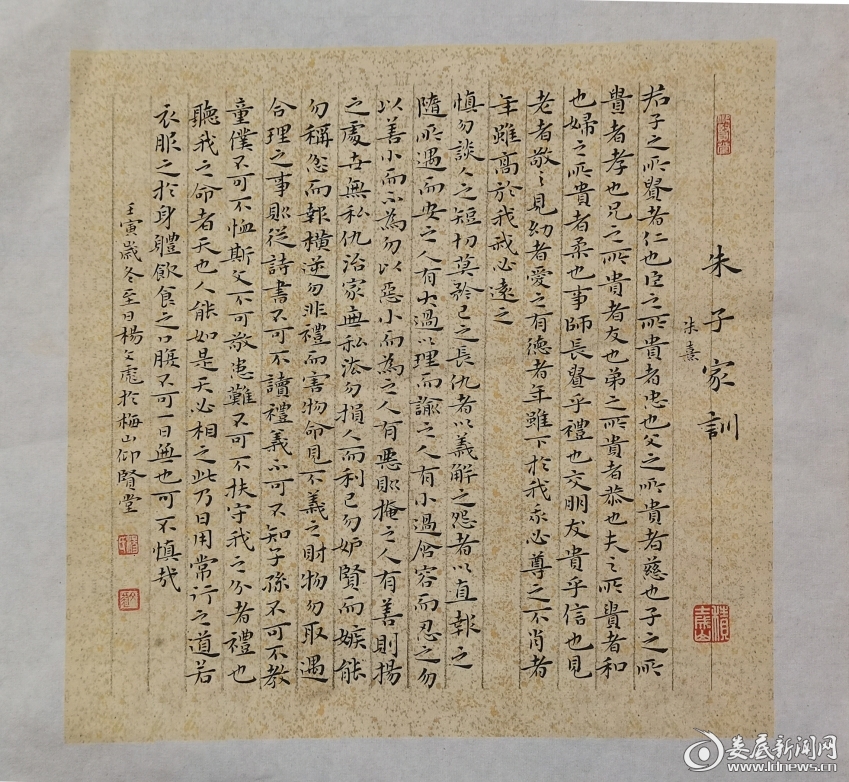 朱子家訓
朱熹
君子之所貴者仁也臣之所貴者忠也父之所貴者慈也子之所
貴者孝也兄之所貴者友也弟之所貴者恭也夫之所貴者和
也婦之所貴者柔也事師長貴乎禮也交朋友貴乎信也見
老者敬之見幼者愛之有德者年雖下於我我必尊之不肖者
年雖高於我我必遠之
慎勿談人之短切莫矜己之長仇者以義解之怨者以直報之
隨所遇而安之人有大過以理而諭之人有小過含容而忍之勿
以善小而不為勿以惡小而為之人有惡則掩之人有善則揚
之處世無私仇治家無私法勿損人而利己勿妒賢而嫉能
勿稱忿而報橫逆勿非禮而害物命見不義之財物勿取遇
合理之事則從詩書不可不讀禮義不可不知子孫不可不教
童僕不可不恤斯文不可敬患難不可不扶守我之分者禮也
聽我之命者天也人能如是天必相之此乃日用常行之道若
衣服之於身體飲食之口腹不可一日無也可不慎哉
壬寅歲冬至日楊文彪於梅山仰賢堂
娄底新闻网
www.ldnews.cn